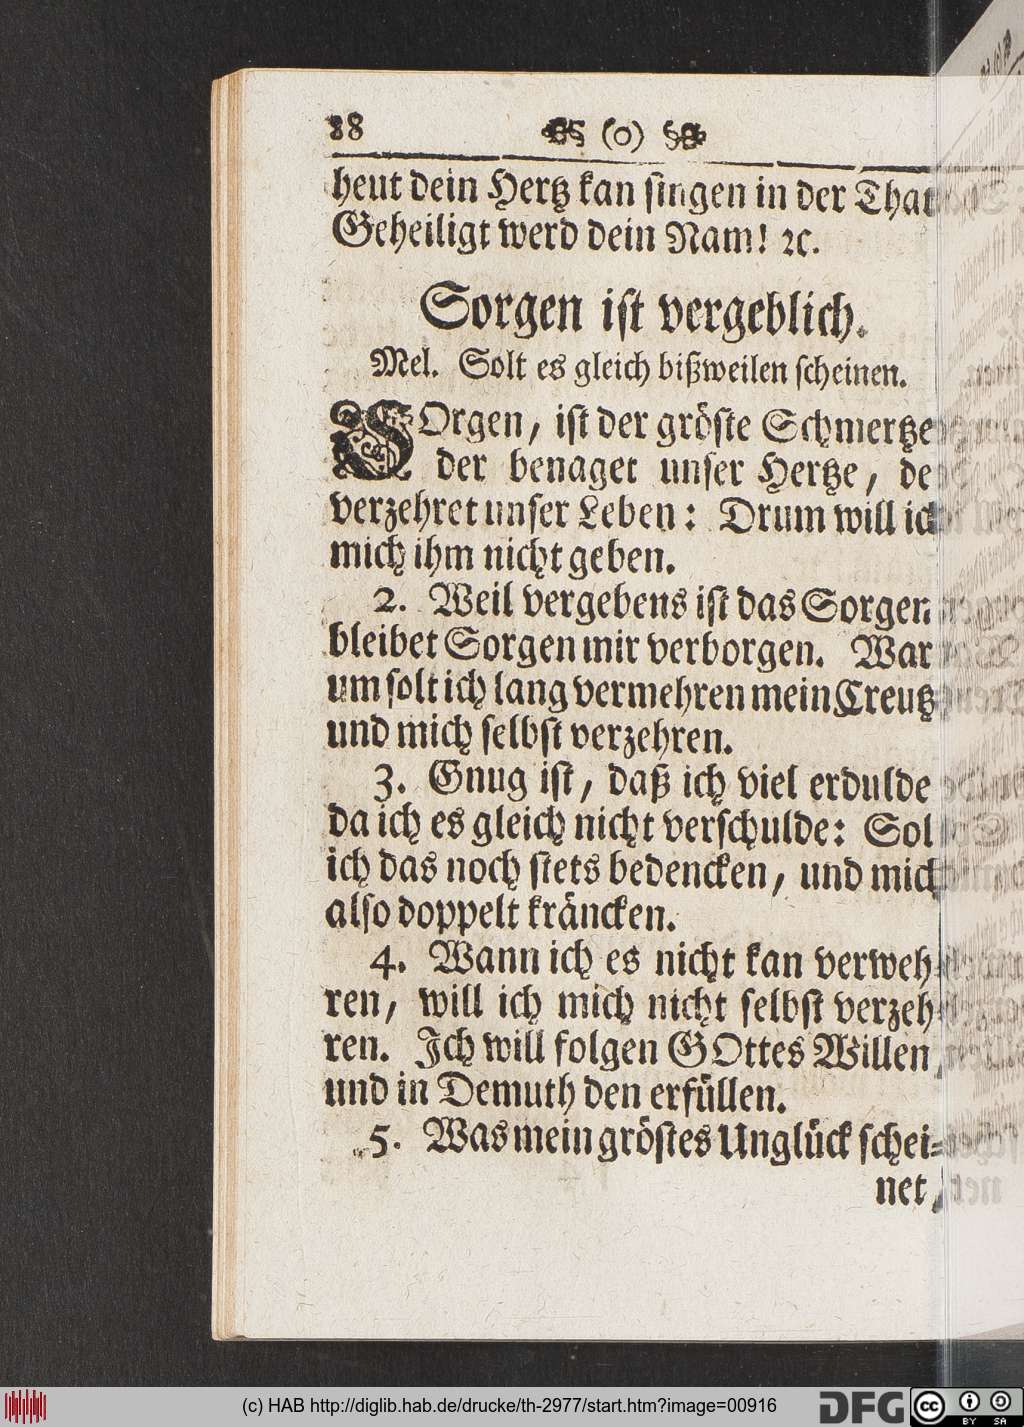 88 (o)
heut dein Hertz kan singen in der That
Geheiligt werd dein Nam! ꝛc.
Sorgen ist vergeblich.
Mel. Solt es gleich bißweilen scheinen.
SOrgen, ist der gröste Schmertze
der benaget unser Hertze, de
verzehret unser Leben: Drum will ich
mich ihm nicht geben.
2. Weil vergebens ist das Sorgen
bleibet Sorgen mir verborgen. War
um solt ich lang vermehren mein Creutz
und mich selbst verzehren.
3. Gnug ist, daß ich viel erdulde
da ich es gleich nicht verschulde: Sol
ich das noch stets bedencken, und mich
also doppelt kräncken.
4. Wann ich es nicht kan verweh-
ren, will ich mich nicht selbst verzeh-
ren. Ich will folgen GOttes Willen,
und in Demuth den erfüllen.
5. Was mein gröstes Unglück schei-
net,
(c) HAB http://diglib.hab.de/drucke/th-2977/start.htm?image=00916
DFG cc BY SA